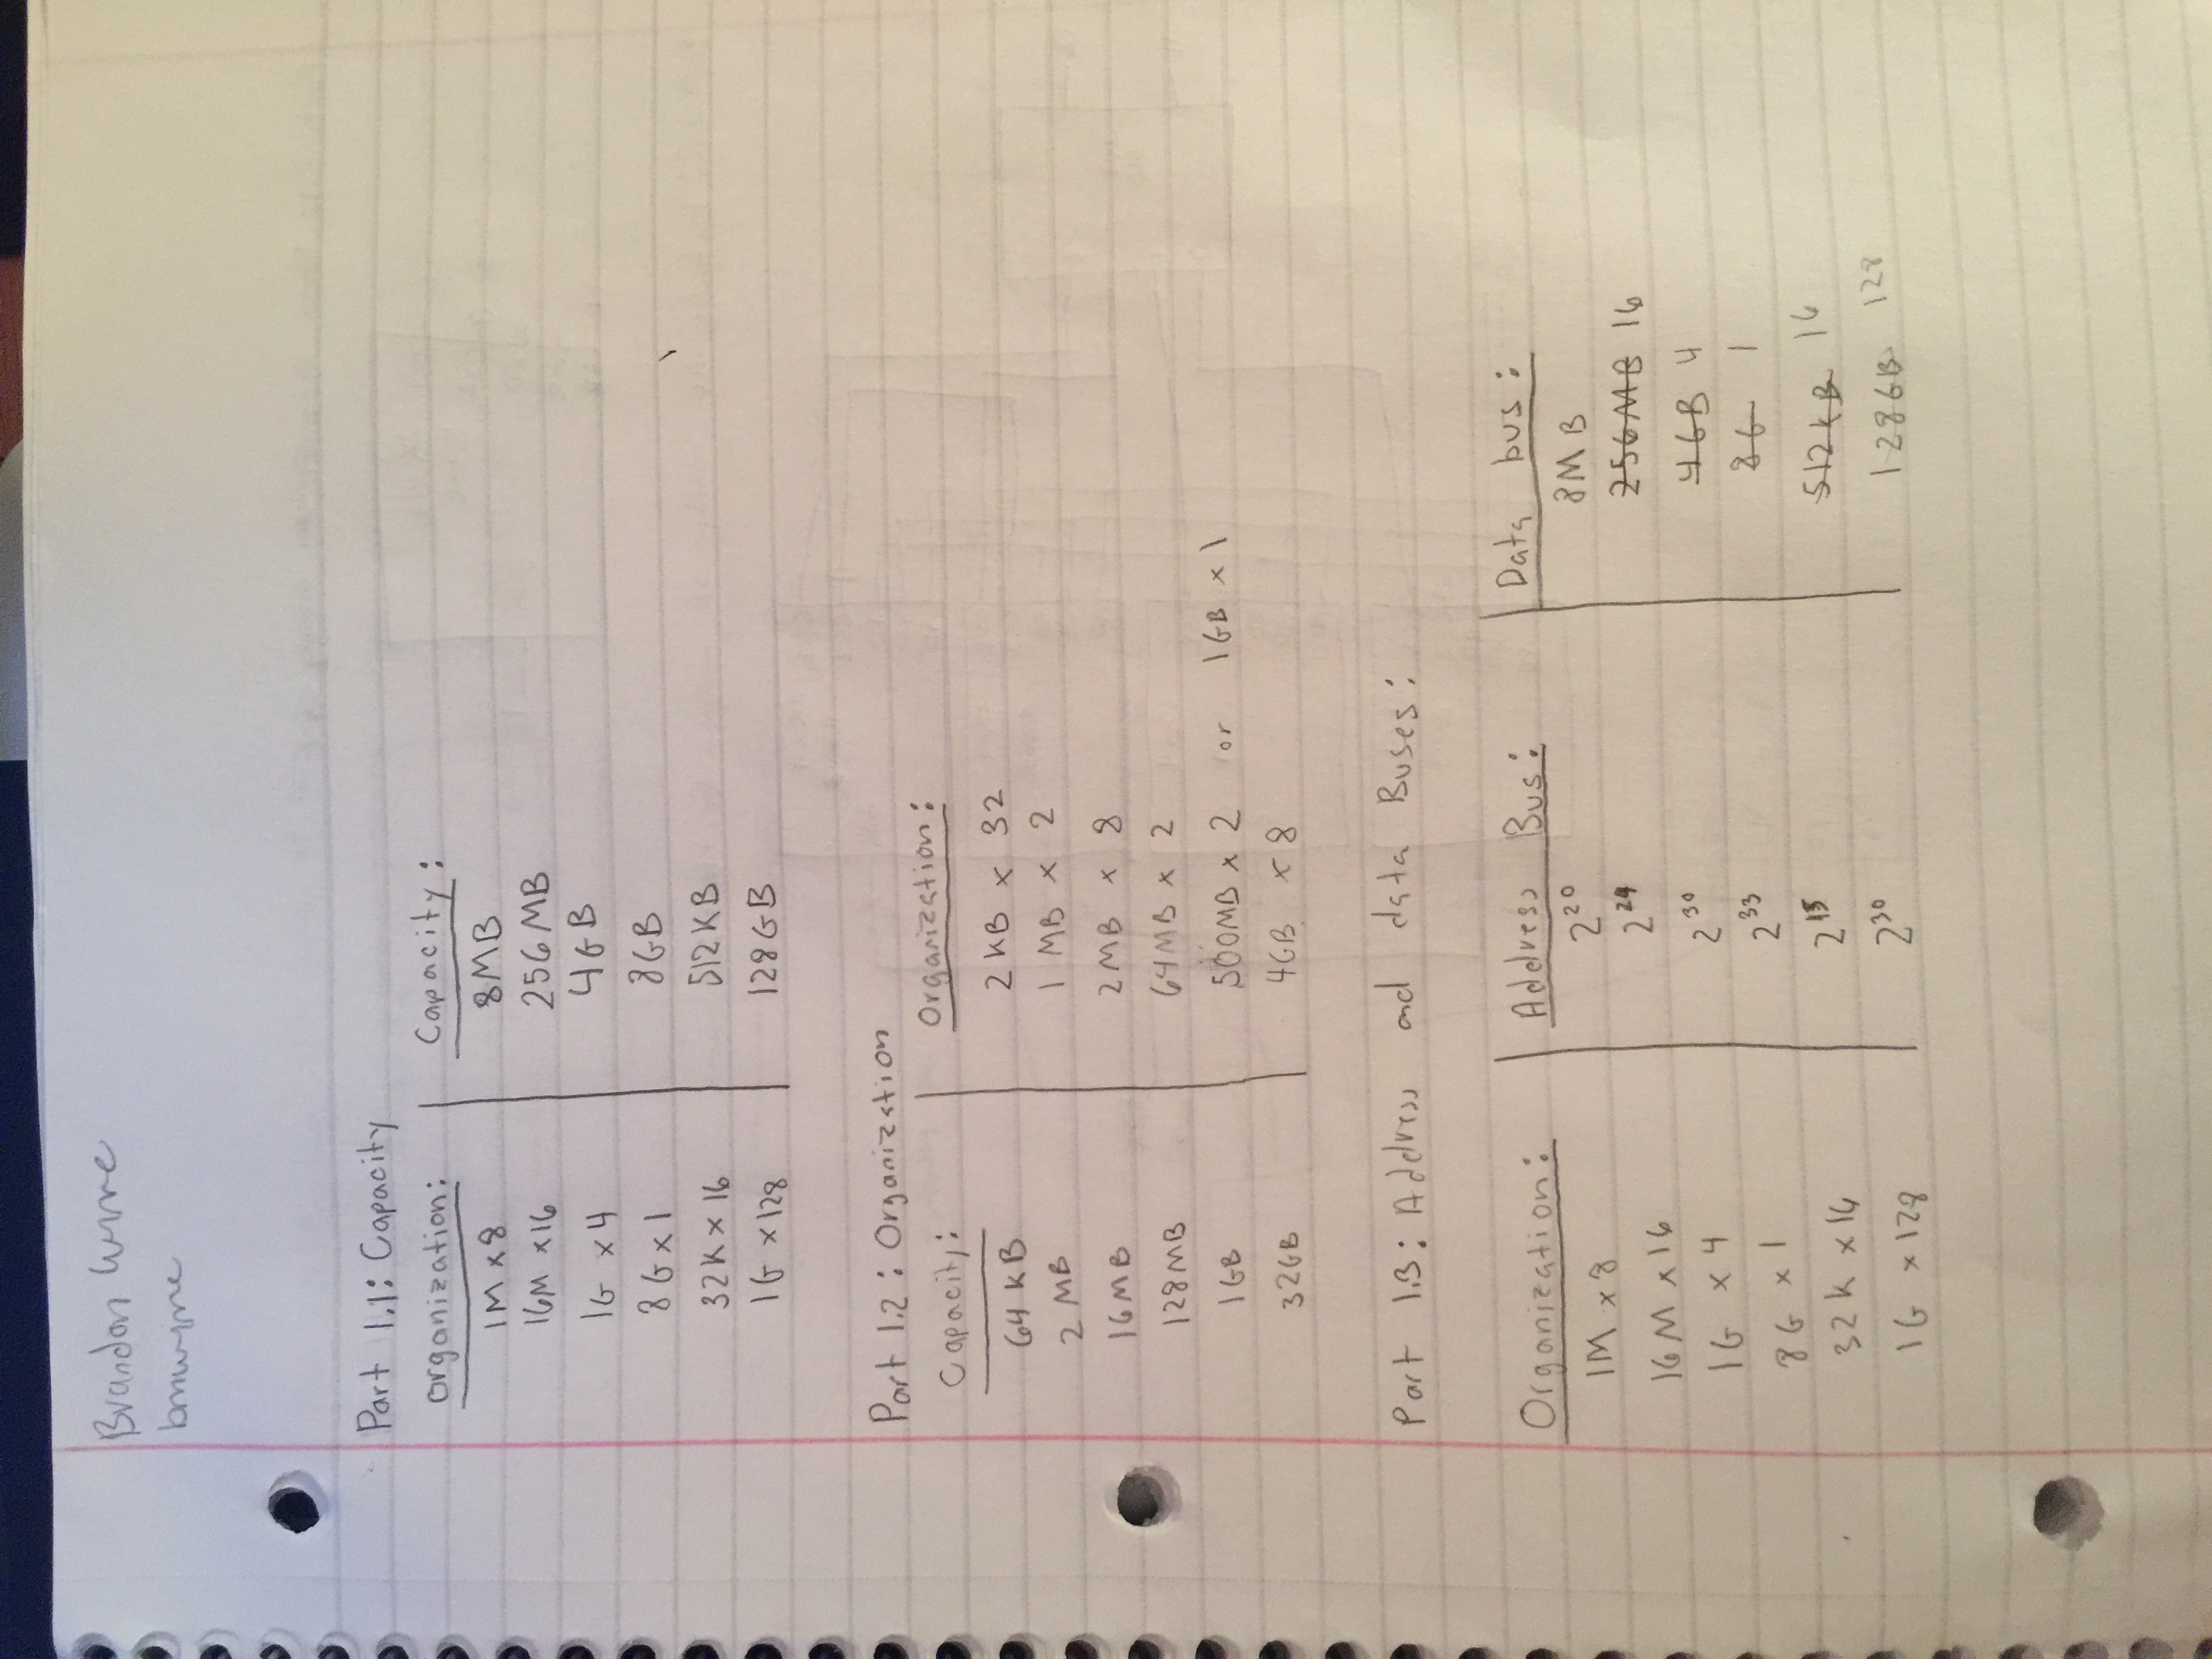 Brandon Wine
bmwine
Part 1.1: Capacity
organization: Capacity:
1M x 8 8MB
16M x 16 256 MB
1G x 4 4GB
8G x 1 8GB
32K x 16 512KB
1G x 128 128GB
Part 1.2: Organization
Capacity: Organization:
64 KB 2 KB x 32
2 MB 1 MB x 2
16MB 2MB x 8
128MB 64MB x 2
1GB 500MB x 2 or 1GB x 1
32GB 4GB x 8
Part 1.3: Address and data Buses:
Organization: Address Bus: Data bus:
1M x 8 2²⁰ 8MB
16M x 16 2²⁴ 256MB 16
1G x 4 2³⁰ 4GB 4
8G x 1 2³³ 8G 1
32K x 16 2¹⁵ 512KB 16
1G x 128 2³⁰ 128GB 128